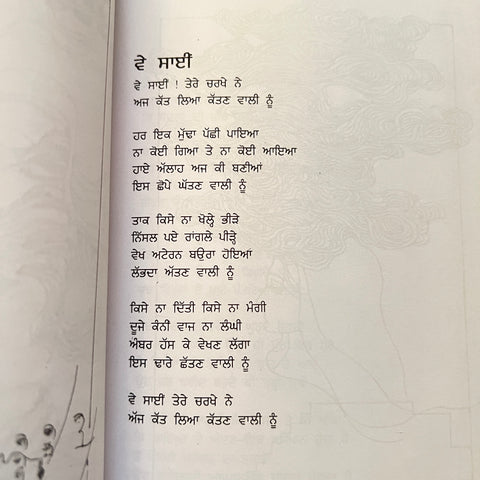 ਵੇ ਸਾਈਂ
ਵੇ ਸਾਈਂ ! ਤੇਰੇ ਚਰਖੇ ਨੇ
ਅਜ ਕੱਤ ਲਿਆ ਕੱਤਣ ਵਾਲੀ ਨੂੰ
ਹਰ ਇਕ ਮੁੱਢਾ ਪੱਛੀ ਪਾਇਆ
ਨਾ ਕੋਈ ਗਿਆ ਤੇ ਨਾ ਕੋਈ ਆਇਆ
ਹਾਏ ਅੱਲਾਹ ਅਜ ਕੀ ਬਣੀਆਂ
ਇਸ ਛੋਪੇ ਘੱਤਣ ਵਾਲੀ ਨੂੰ
ਤਾਕ ਕਿਸੇ ਨਾ ਖੋਲ੍ਹੇ ਭੀੜੇ
ਨਿੱਸਲ ਪਏ ਰਾਂਗਲੇ ਪੀੜ੍ਹੇ
ਵੇਖ ਅਟੇਰਨ ਬਉਰਾ ਹੋਇਆ
ਲੱਭਦਾ ਅੱਟਣ ਵਾਲੀ ਨੂੰ
ਕਿਸੇ ਨਾ ਦਿੱਤੀ ਕਿਸੇ ਨਾ ਮੰਗੀ
ਦੂਜੇ ਕੰਨੀ ਵਾਜ ਨਾ ਲੰਘੀ
ਅੰਬਰ ਹੱਸ ਕੇ ਵੇਖਣ ਲੱਗਾ
ਇਸ ਢਾਰੇ ਛੱਤਣ ਵਾਲੀ ਨੂੰ
ਵੇ ਸਾਈਂ ਤੇਰੇ ਚਰਖੇ ਨੇ
ਅੱਜ ਕੱਤ ਲਿਆ ਕੱਤਣ ਵਾਲੀ ਨੂੰ